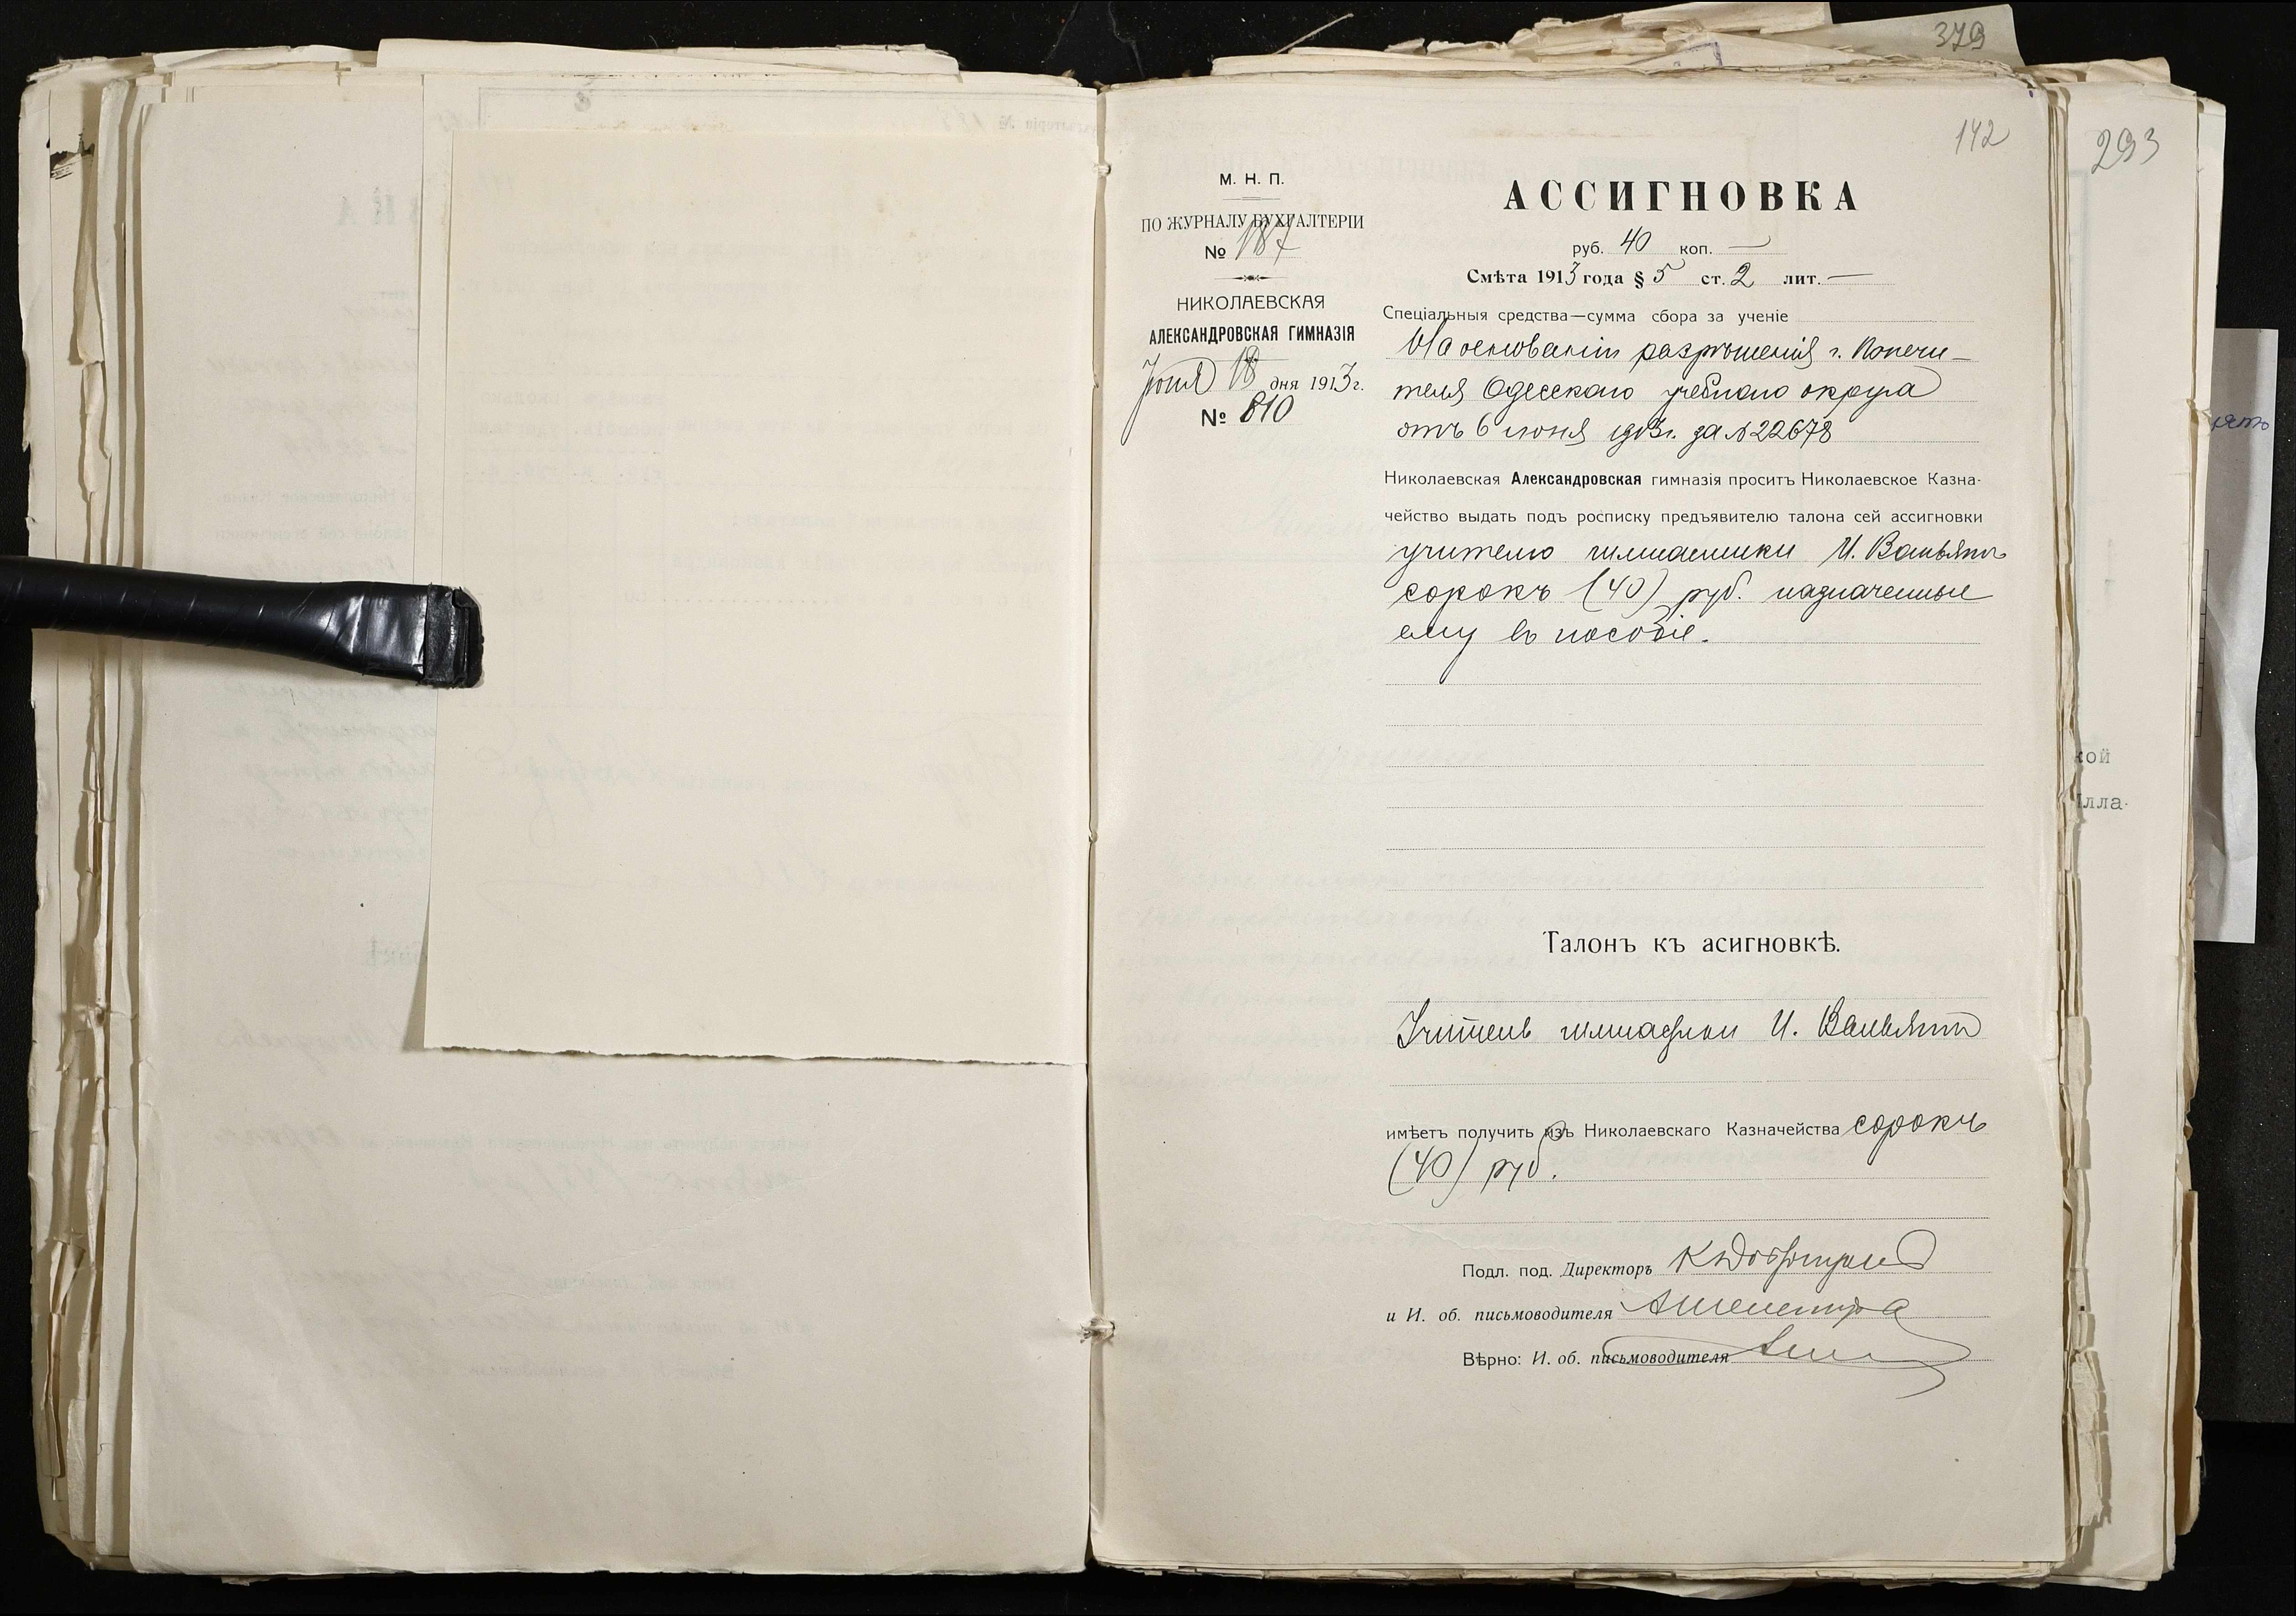 379
293
142
М. Н. П.
ПО ЖУРНАЛУ БУХГАЛТЕРІИ
№ 187
НИКОЛАЕВСКАЯ
АЛЕКСАНДРОВСКАЯ ГИМНАЗІЯ
Іюня 18 дня 1913 г.
№ 810
АССИГНОВКА
руб. 40 коп. —
Смѣта 1913 года § 5 ст. 2 лит. —
Спеціальныя средства—сумма сбора за ученіе
На основаніи разрѣшенія г. Попечи-
теля Одесскаго учебнаго округа
отъ 6 іюня 1913 г. за № 22678
Николаевская Александровская гимназія проситъ Николаевское Казна-
чейство выдать подъ росписку предъявителю талона сей ассигновки
учителю гимнастики И. Ваньятъ
сорокъ (40) руб. назначенные
ему въ пособіе.
Талонъ къ асигновкѣ.
Учитель И. Ваньятъ
имѣетъ получить изъ Николаевскаго Казначейства сорокъ
(40) руб.
Подл. под. Директоръ
и И. об. письмоводителя
Вѣрно: И. об. письмоводителя
кой
лла-
ять